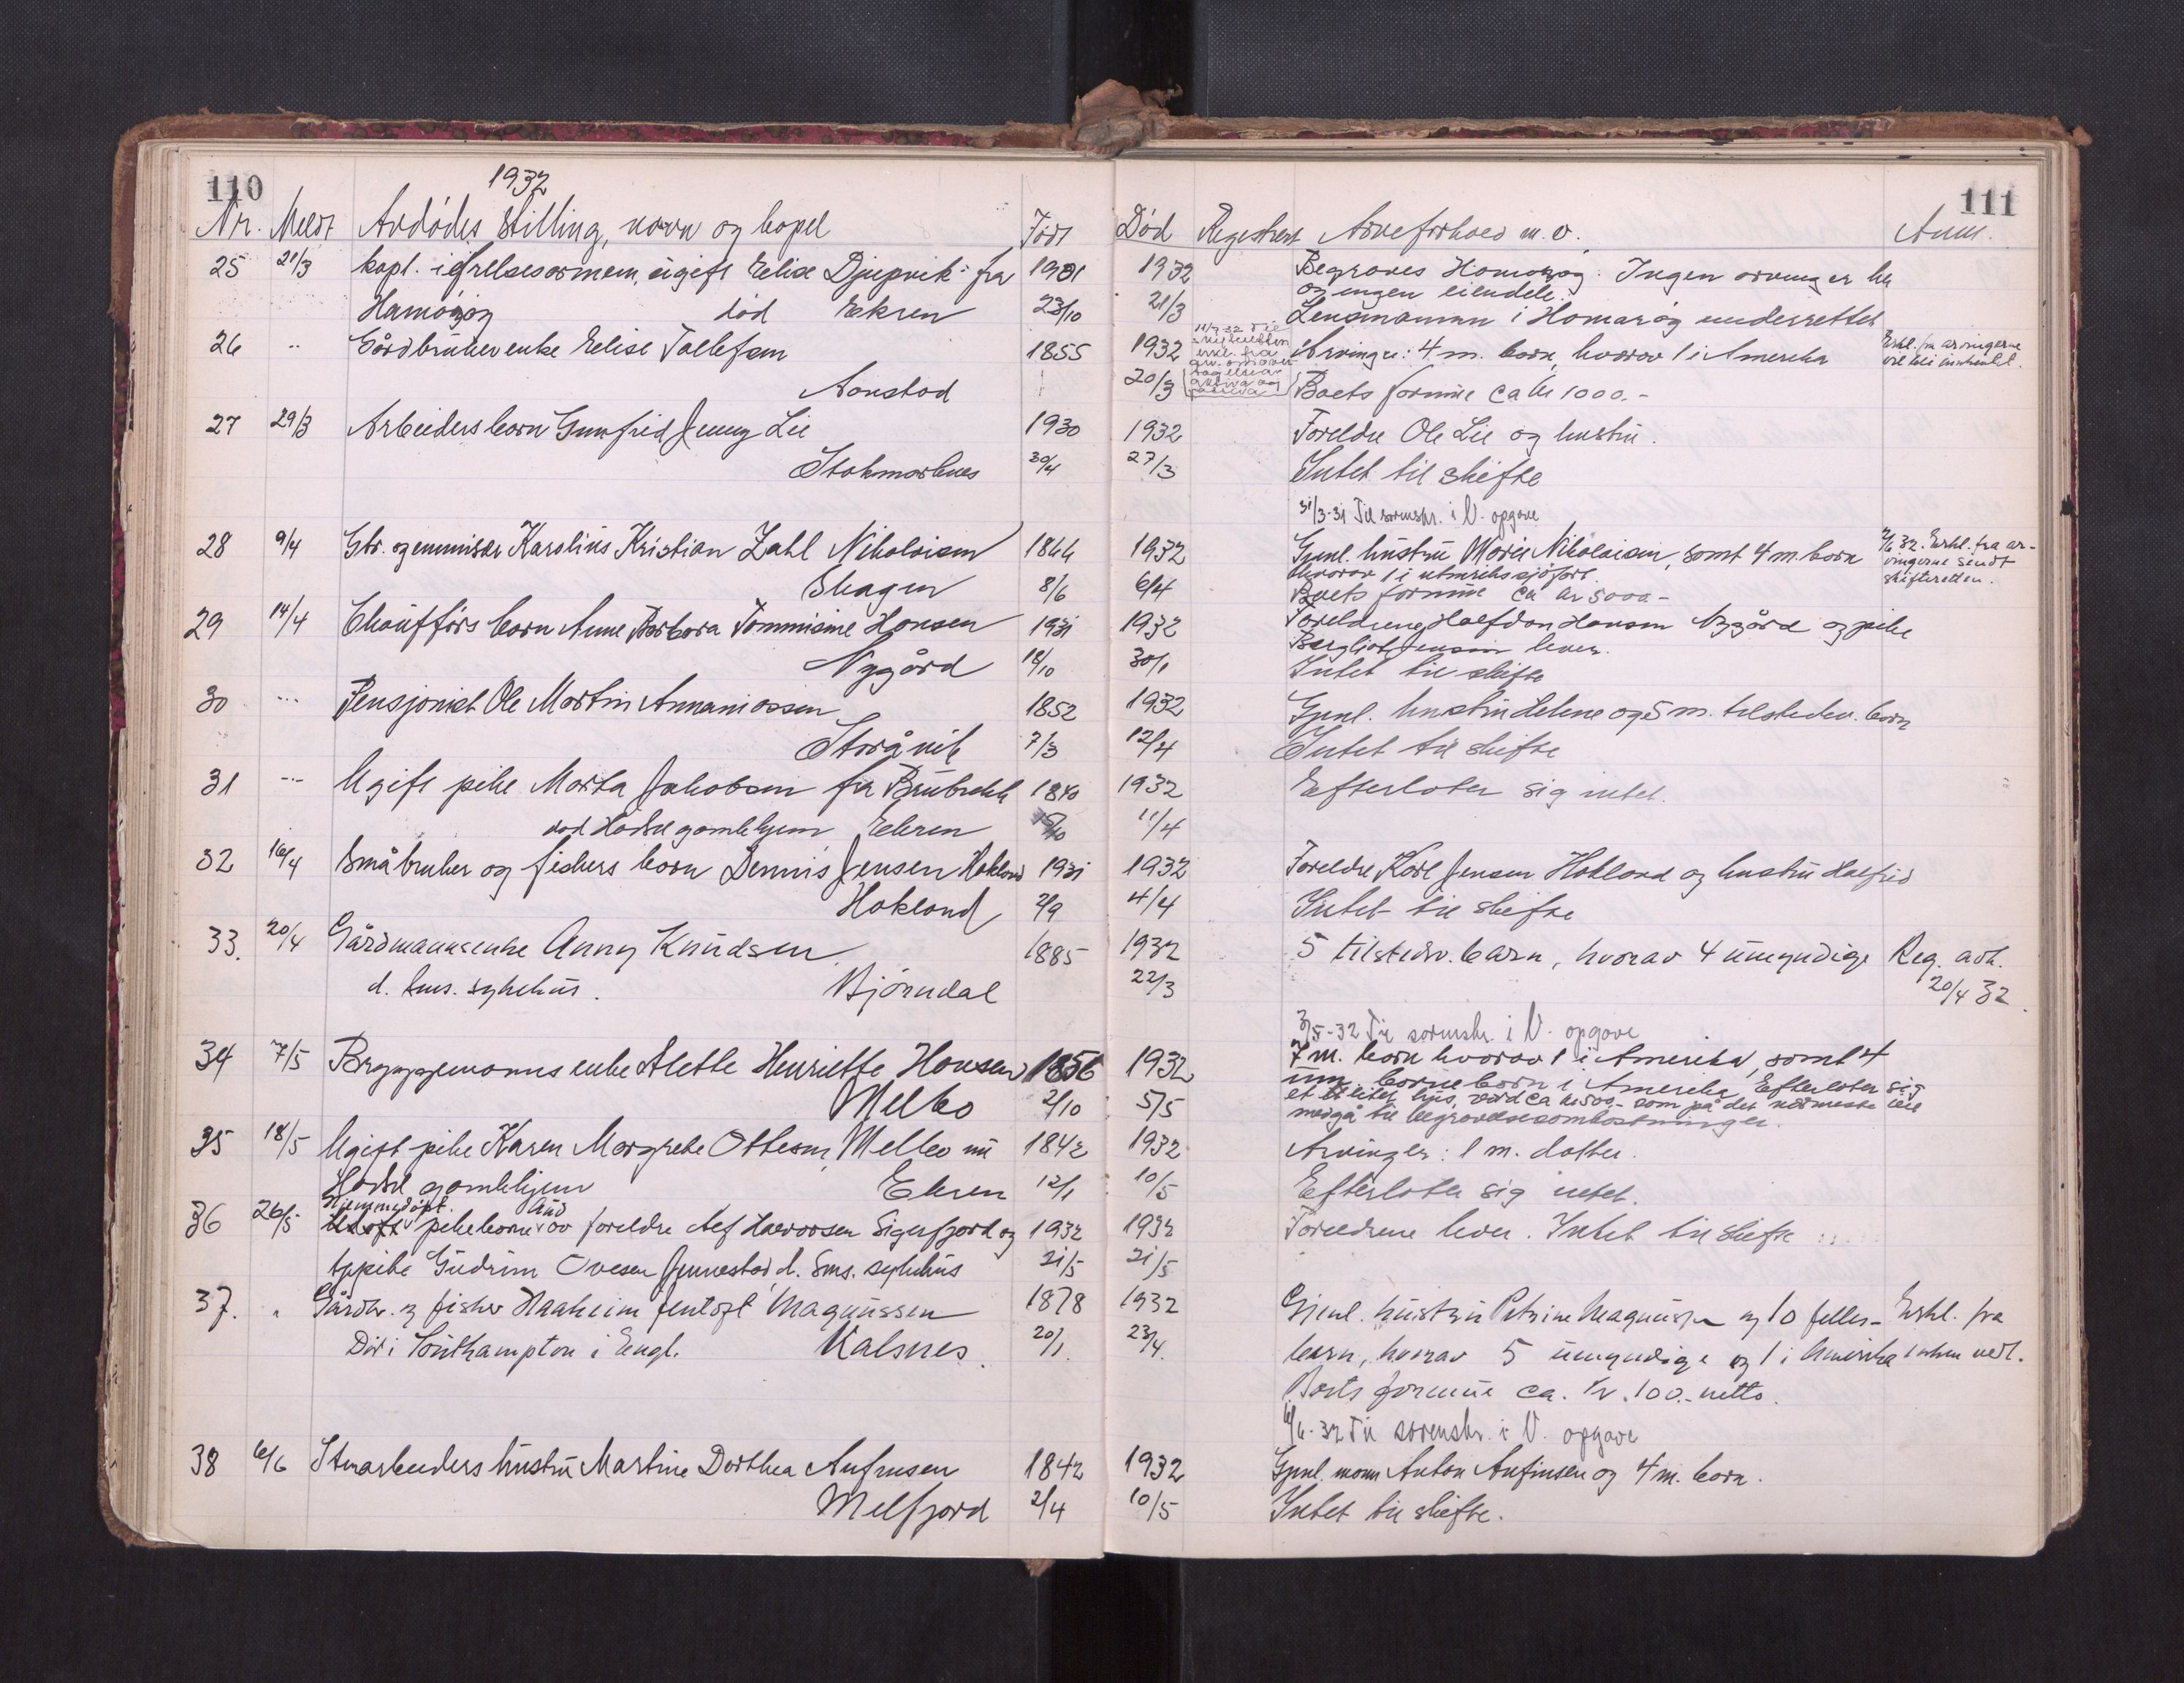 110
1932
111
Nr. Meldt Avdødes stilling, navn og bopel Født Død Registrert Arveforhold m.v. Anm.
25 21/3 kapt. i frelsesarmeen, ugift Elise Djupvik fra 1901 1932 Begraves Hamarøy. Ingen arvinger her
og ingen eiendele.
Hamarøy død Ekren 23/10 21/3 Lensmannen i Hamarøy underrettet
26 " Gårdbrukerenke Elise Tollefsen 1855 1932 Arvinger: 4 m. barn, hvorav 1 i Amerika Erkl. fra arvingerne
vil bli innhentet.
11/7-32 til
skifteretten
erkl. fra
arv. og
aktiva og
passiva
Aonstad 20/3 Boets formue ca kr 1000.-
27 29/3 Arbeiders barn Gunfrid Jenny Lie 1930 1932 Foreldre Ole Lie og hustru.
Stokmarknes 30/4 27/3 Intet til skifte
31/3-31 Til sorenskr. i V. opgave
28 9/4 Gbr. og emmisær Karolius Kristian Zahl Nikolaisen 1866 1932 Gjenl. hustru Marie Nikolaisen, samt 4 m. barn
hvorav 1 i utenriks sjøfart.
2/6 32. Erkl. fra ar-
vingerne sendt
skifteretten.
Skagen 8/6 6/4 Boets formue ca kr 5000.-
29 14/4 Chaufførs barn Anne Barbara Tommine Hansen 1931 1932 Foreldrene Halfdan Hansen Nygård og pike
Bergljot Jensen lever.
Nygård 18/10 30/1 Intet til skifte
30 " Pensjonist Ole Martin Annaniassen 1852 1932 Gjenl. hustru Helene og 5 m. tilstedev. barn
Storåvik 7/3 12/4 Intet til skifte
31 " Ugift pike Marta Jakobsen fra Breibrekk 1840 1932 Efterlater sig intet.
død Hadsel gamlehjem Ekren 15/10 11/4
32 16/4 Småbruker og fiskers barn Dennis Jensen Hokland 1931 1932 Foreldre Karl Jensen Hokland og hustru Halfrid
Hokland 2/9 4/4 Intet til skifte
33. 20/4 Gårdmannsenke Anny Knudsen 1885 1932 5 tilstedev. barn, hvorav 4 umyndige Reg. avh.
d. Sms. sykehus. Bjørndal 22/3 20/4 32
3/5-32 Til sorenskr. i V. opgave
34 7/5 Bryggemanns enke Alette Henriette Hansen 1856 1932 7 m. barn hvorav 1 i Amerika, samt 4
um. barnebarn i Amerika Efterlater sig
et litet hus, verd ca kr 500.- som på det nærmeste vil
medgå til begravelsesomkostninger.
Melbo 2/10 5/5
35 18/5 Ugift pike Karen Margrete Ottesen, Melbo nu 1842 1932 Arvinger: 1 m. datter.
Hadsel gamlehjem Ekren 12/1 10/5 Efterlater sig intet.
Hjemmedøpt. Aud
36 26/5 Udøpt pikebarn av foreldre Alf Halvorsen Sigerfjord og 1932 1932 Foreldrene lever. Intet til skifte
tj.pike Gudrun Ovesen Jennestad, d. Sms. sykehus 21/5 21/5
37. " Gårdbr. og fisker Haaheim Jentoft Magnussen 1878 1932 Gjenl. hustru Petrine Magnussen og 10 felles- Erkl. fra
Død i Southampton i Engl. Kalsnes. 20/1 23/4. barn, hvorav 5 umyndige og 1 i Amerika enken vedl.
Boets formue ca. kr. 100.- netto.
6/6-32 Til sorenskr. i V. opgave
38 6/6 Stuarbeiders hustru Martine Dorthea Anfinsen 1842 1932 Gjenl. mann Anton Anfinsen og 4 m. barn.
Melfjord 2/4 10/5 Intet til skifte.